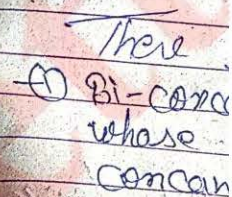 There
① Bi-conc
whose
concav